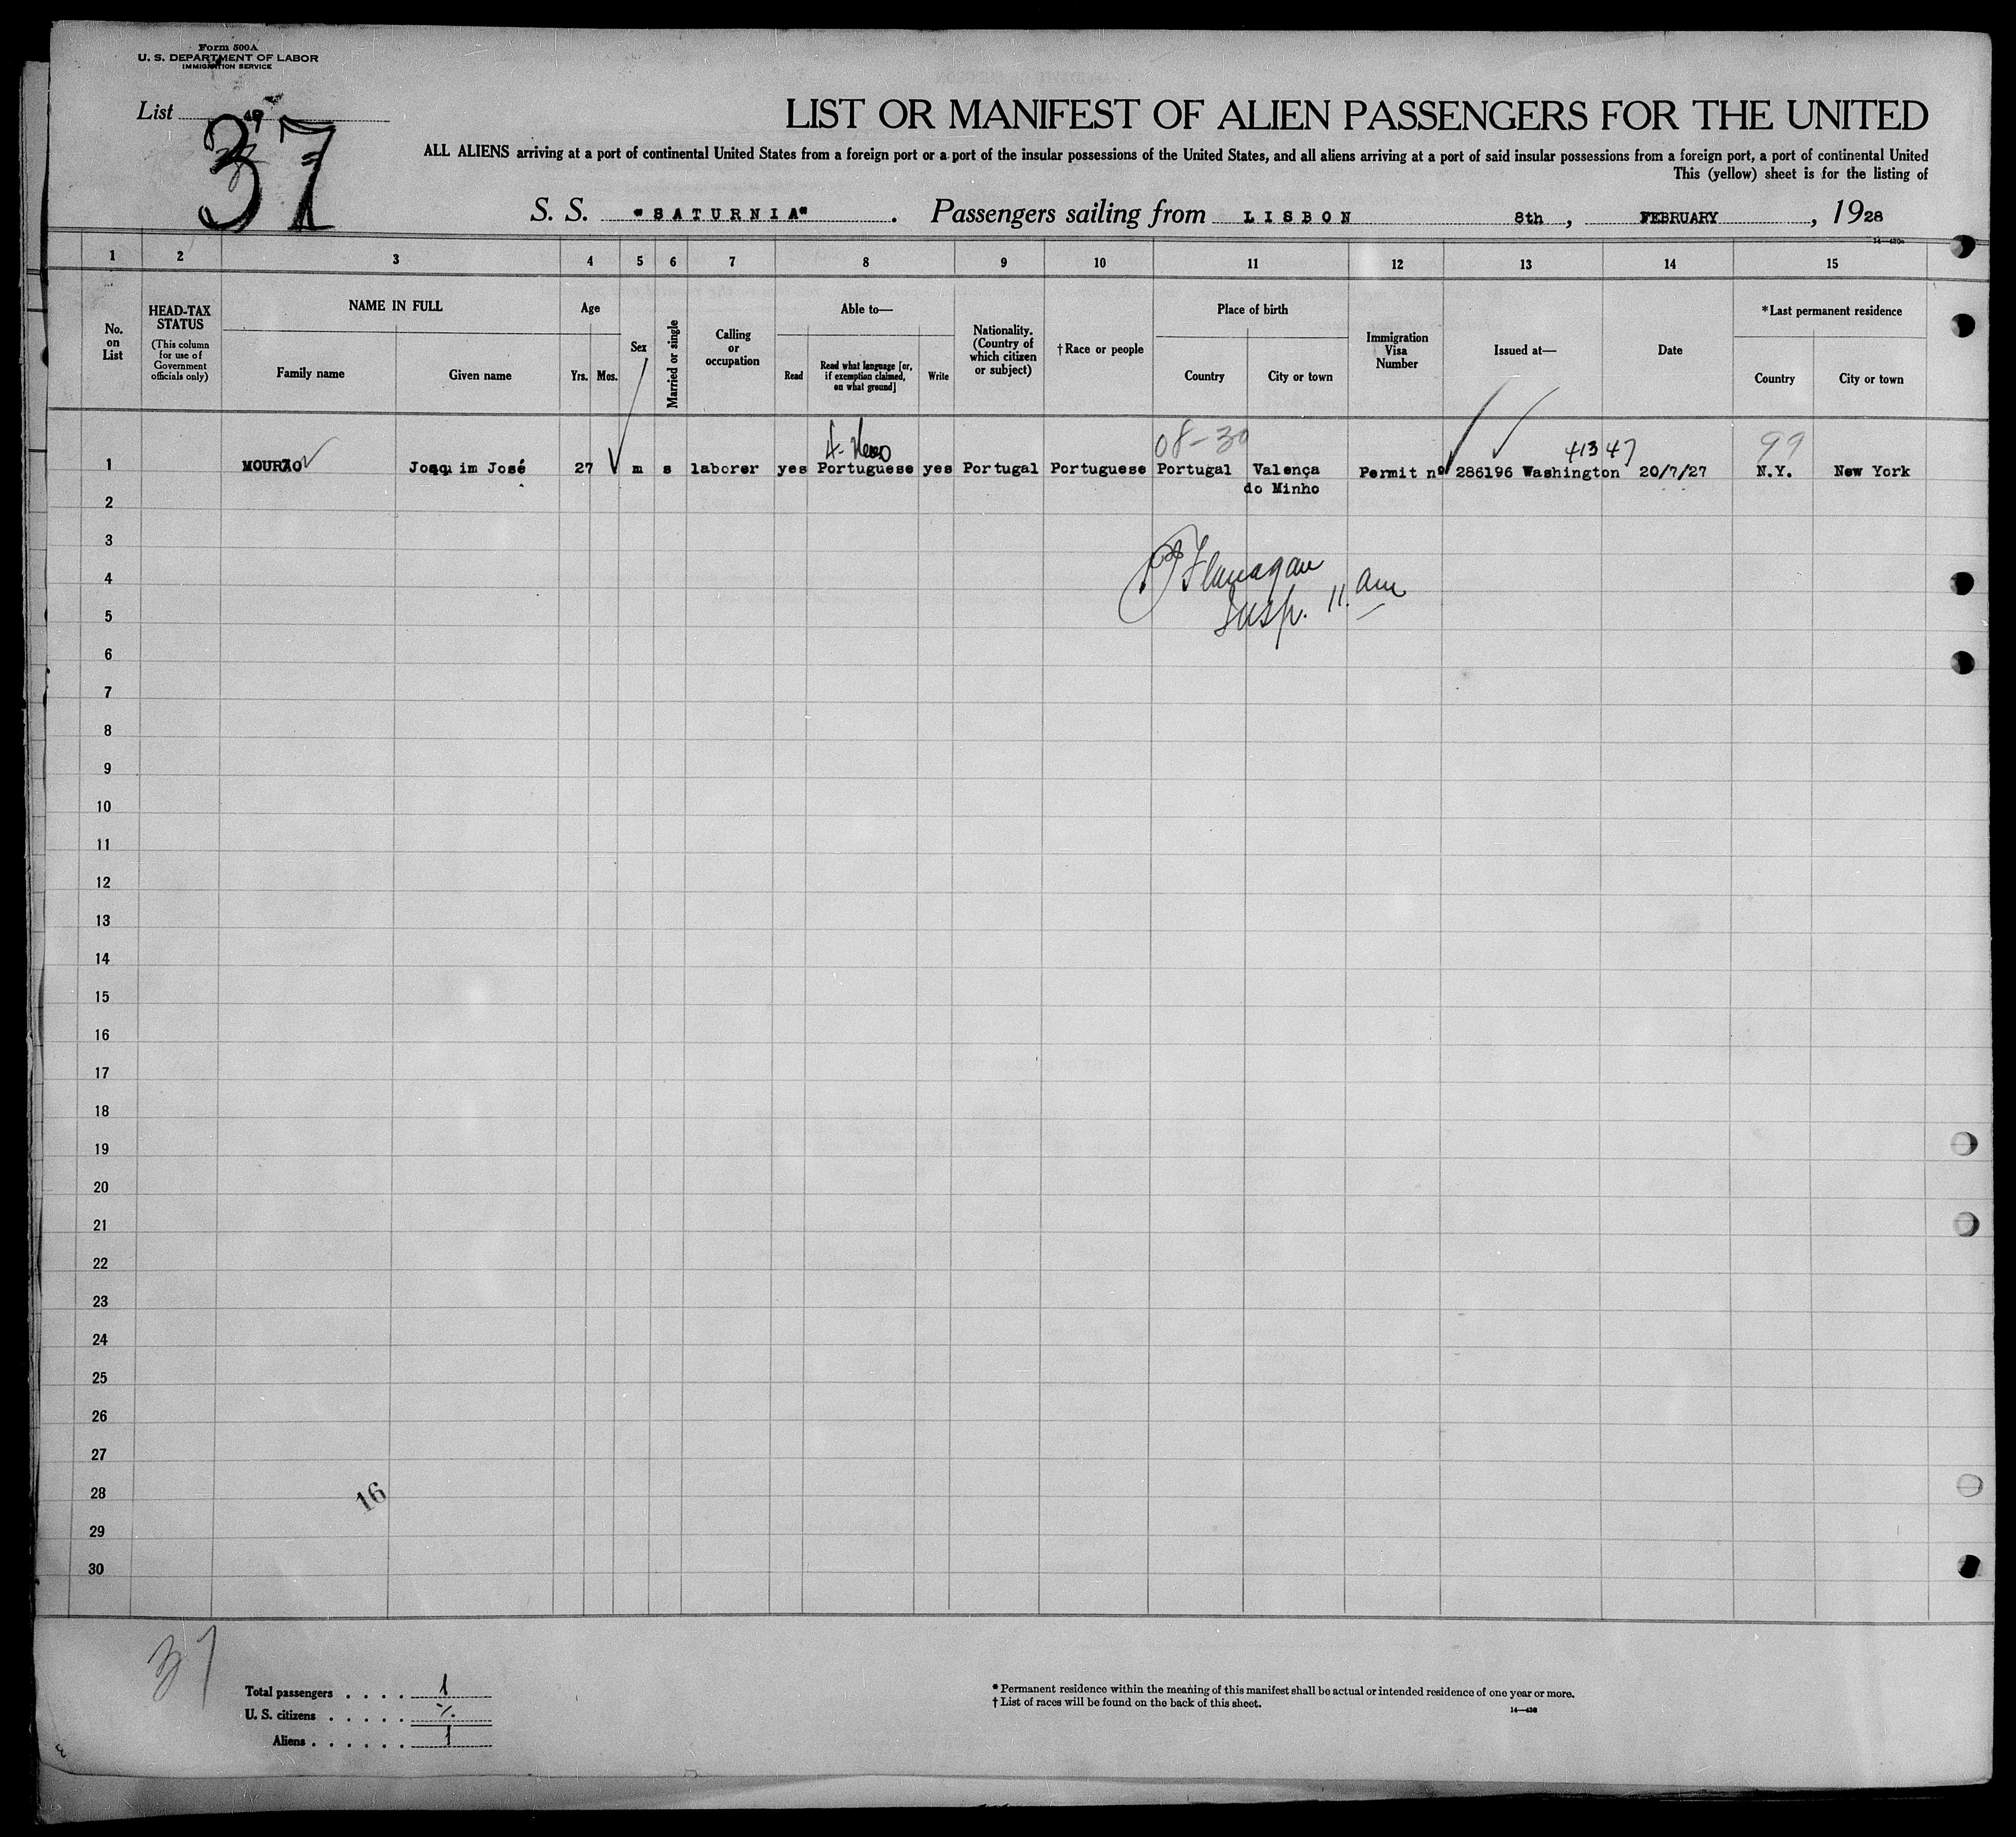 Form 500A
U. S. DEPARTMENT OF LABOR
IMMIGRATION SERVICE
List 49
37
LIST OR MANIFEST OF ALIEN PASSENGERS FOR THE UNITED
ALL ALIENS arriving at a port of continental United States from a foreign port or a port of the insular possessions of the United States, and all aliens arriving at a port of said insular possessions from a foreign port, a port of continental United
This (yellow) sheet is for the listing of
S. S. "SATURNIA". Passengers sailing from LISBON 8th, FEBRUARY, 1928
1 2 3 4 5 6 7 8 9 10 11 12 13 14 15
No. on List
HEAD-TAX STATUS
(This column for use of Government officials only)
NAME IN FULL
Family name
Given name
Age
Yrs. Mos.
Sex
Married or single
Calling or occupation
Able to—
Read
Read what language [or, if exemption claimed, on what ground]
Write
Nationality. (Country of which citizen or subject)
†Race or people
Place of birth
Country
City or town
Immigration Visa Number
Issued at—
Date
*Last permanent residence
Country
City or town
08-30 41347 99
1 MOURÃO Joaquim José 27 m s laborer yes Portuguese yes Portugal Portuguese Portugal Valença Permit nº 286196 Washington 20/7/27 N.Y. New York
do Minho
2
3
Flanagan
4
Insp. 11. am
5
6
7
8
9
10
11
12
13
14
15
16
17
18
19
20
21
22
23
24
25
26
27
28
16
29
30
37
Total passengers . . . . 1
U. S. citizens . . . . .
Aliens . . . . . . 1
* Permanent residence within the meaning of this manifest shall be actual or intended residence of one year or more.
† List of races will be found on the back of this sheet.
14—430